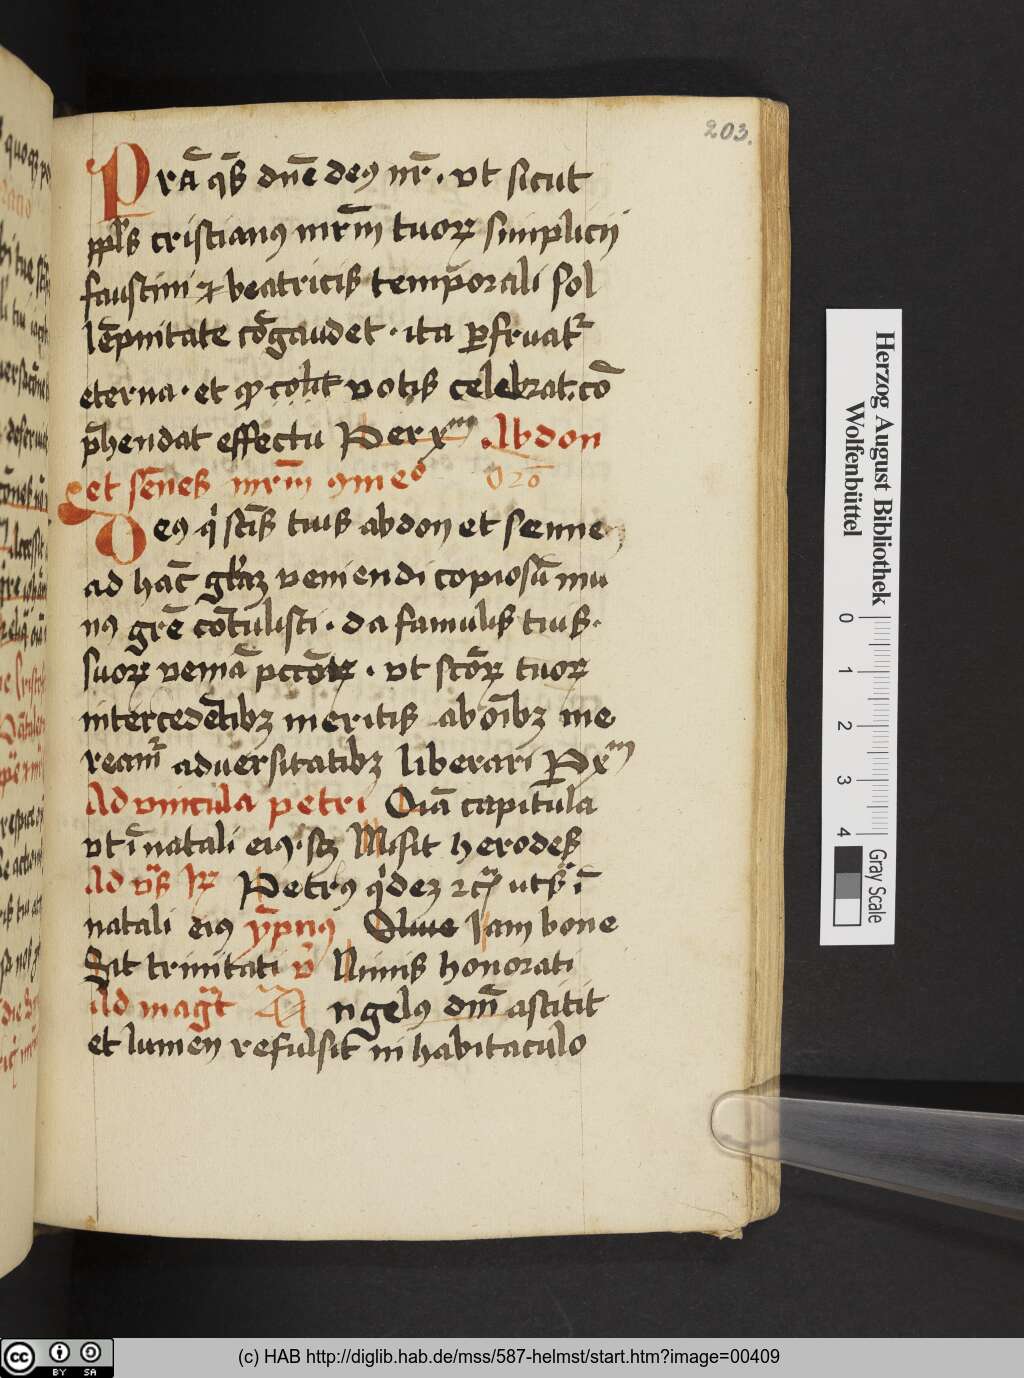 203.
Prā qs̄ dn̄e deꝰ nr̄ . vt sicut
ppl̄s cristianꝰ mr̄m tuoꝝ simplicij
faustini ⁊ beatricis temp̄orali sol
lēpnitate cōgaudet . ita ꝑfruat᷑
eterna . et ꝙ colit votis celebrat . cō
p̄hendat effectu Per xᵐ Abdon
et sēnes mr̄m
Oro᷎
Deꝰ qͥ sc̄is tuis abdon et sennen
ad hāc gl̄iaꝫ veniendi copiosū mu
nꝰ gr̄e cōtulisti . da famulis tuis .
suoꝝ veniā pccōꝝ . vt sc̄oꝝ tuoꝝ
intercedētibꝫ meritis ab oībꝫ me
ream᷑ aduersitatibꝫ liberari P xᵐ
Ad vincula petri Oīa capitula
vt ī natali eiꝰ . scꝫ Misit herodes
Ad vs̄ Petrꝰ qͥdeꝫ ut sͣ ī
natali eiꝰ ympnꝰ Iam bone
Sit trinitati v̄ Nimis honorati
Ad magͣt A Angelꝰ dn̄i astitit
et lumen refulsit in habitaculo
Herzog August Bibliothek
Wolfenbüttel
0 1 2 3 4
Gray Scale
cc BY SA
(c) HAB http://diglib.hab.de/mss/587-helmst/start.htm?image=00409